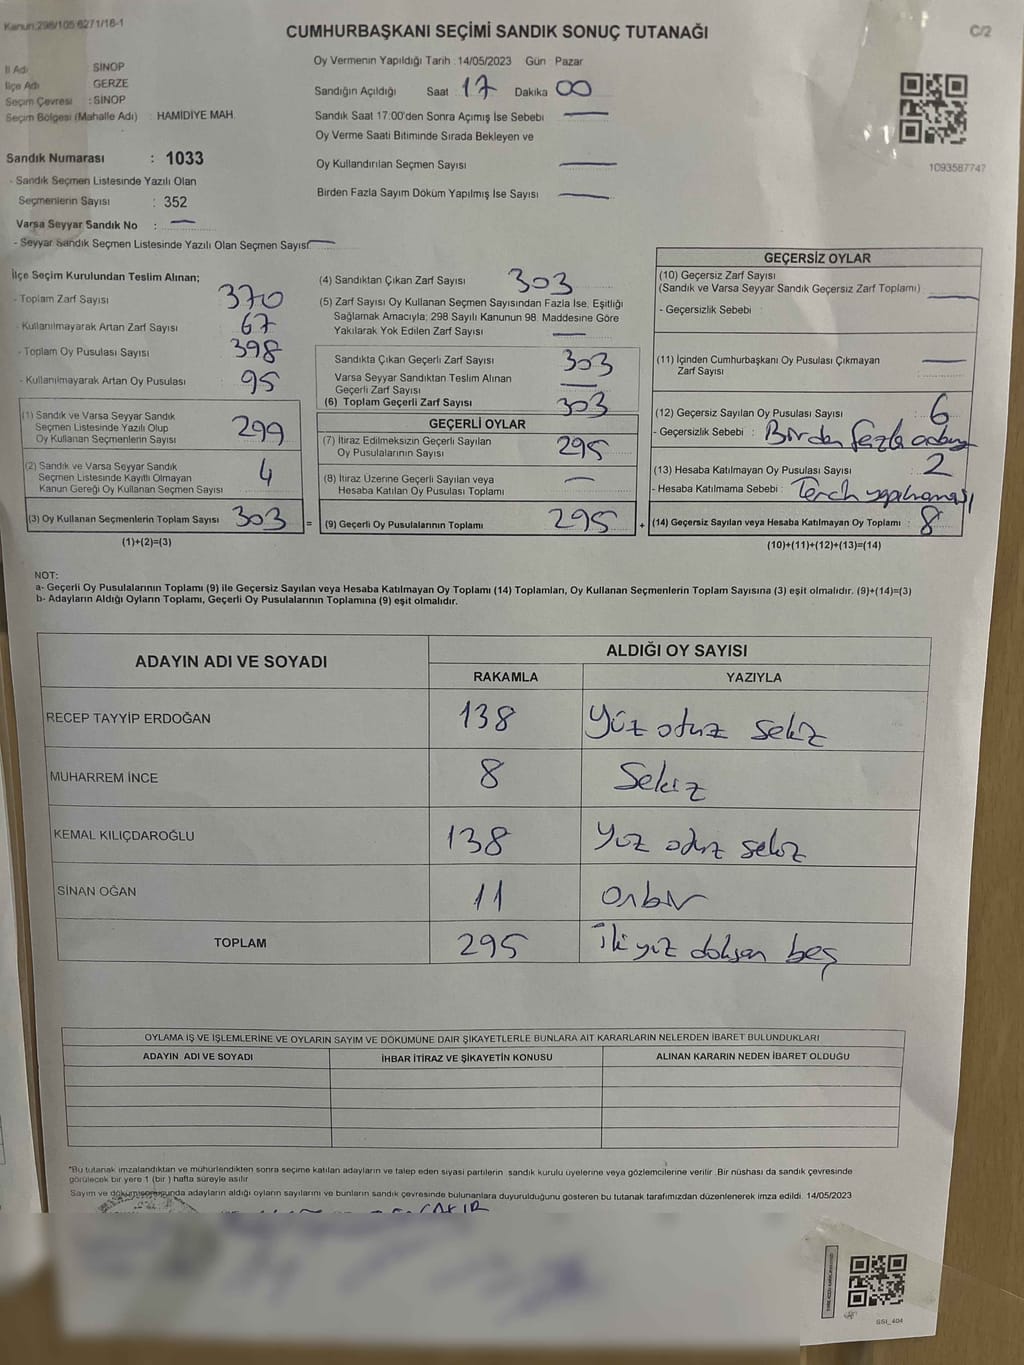 Kanun:298/105 6271/18-1
CUMHURBAŞKANI SEÇİMİ SANDIK SONUÇ TUTANAĞI
C/2
İl Adı : SİNOP
İlçe Adı : GERZE
Seçim Çevresi : SİNOP
Seçim Bölgesi (Mahalle Adı) : HAMİDİYE MAH.
Sandık Numarası : 1033
- Sandık Seçmen Listesinde Yazılı Olan
Seçmenlerin Sayısı : 352
Varsa Seyyar Sandık No : —
- Seyyar Sandık Seçmen Listesinde Yazılı Olan Seçmen Sayısı: —
Oy Vermenin Yapıldığı Tarih :14/05/2023 Gün Pazar
Sandığın Açıldığı Saat 17 Dakika 00
Sandık Saat 17:00'den Sonra Açımış İse Sebebi —
Oy Verme Saati Bitiminde Sırada Bekleyen ve
Oy Kullandırılan Seçmen Sayısı —
Birden Fazla Sayım Döküm Yapılmış İse Sayısı —
1093588747
İlçe Seçim Kurulundan Teslim Alınan;
- Toplam Zarf Sayısı 370
- Kullanılmayarak Artan Zarf Sayısı 67
- Toplam Oy Pusulası Sayısı 398
- Kullanılmayarak Artan Oy Pusulası 95
(1) Sandık ve Varsa Seyyar Sandık
Seçmen Listesinde Yazılı Olup
Oy Kullanan Seçmenlerin Sayısı 299
(2) Sandık ve Varsa Seyyar Sandık
Seçmen Listesinde Kayıtlı Olmayan
Kanun Gereği Oy Kullanan Seçmen Sayısı 4
(3) Oy Kullanan Seçmenlerin Toplam Sayısı 303 =
(1)+(2)=(3)
(4) Sandıktan Çıkan Zarf Sayısı 303
(5) Zarf Sayısı Oy Kullanan Seçmen Sayısından Fazla İse, Eşitliği
Sağlamak Amacıyla; 298 Sayılı Kanunun 98. Maddesine Göre
Yakılarak Yok Edilen Zarf Sayısı —
Sandıkta Çıkan Geçerli Zarf Sayısı 303
Varsa Seyyar Sandıktan Teslim Alınan
Geçerli Zarf Sayısı —
(6) Toplam Geçerli Zarf Sayısı 303
GEÇERLİ OYLAR
(7) İtiraz Edilmeksizin Geçerli Sayılan
Oy Pusulalarının Sayısı 295
(8) İtiraz Üzerine Geçerli Sayılan veya
Hesaba Katılan Oy Pusulası Toplamı —
(9) Geçerli Oy Pusulalarının Toplamı 295 +
GEÇERSİZ OYLAR
(10) Geçersiz Zarf Sayısı
(Sandık ve Varsa Seyyar Sandık Geçersiz Zarf Toplamı) —
- Geçersizlik Sebebi :
(11) İçinden Cumhurbaşkanı Oy Pusulası Çıkmayan
Zarf Sayısı —
(12) Geçersiz Sayılan Oy Pusulası Sayısı : 6
- Geçersizlik Sebebi : Birden fazla
(13) Hesaba Katılmayan Oy Pusulası Sayısı : 2
- Hesaba Katılmama Sebebi : Tercih yapılmaması
(14) Geçersiz Sayılan veya Hesaba Katılmayan Oy Toplamı : 8
(10)+(11)+(12)+(13)=(14)
NOT:
a- Geçerli Oy Pusulalarının Toplamı (9) ile Geçersiz Sayılan veya Hesaba Katılmayan Oy Toplamı (14) Toplamları, Oy Kullanan Seçmenlerin Toplam Sayısına (3) eşit olmalıdır. (9)+(14)=(3)
b- Adayların Aldığı Oyların Toplamı, Geçerli Oy Pusulalarının Toplamına (9) eşit olmalıdır.
ADAYIN ADI VE SOYADI ALDIĞI OY SAYISI
RAKAMLA YAZIYLA
RECEP TAYYİP ERDOĞAN 138 yüz otuz sekiz
MUHARREM İNCE 8 Sekiz
KEMAL KILIÇDAROĞLU 138 yüz otuz sekiz
SİNAN OĞAN 11 onbir
TOPLAM 295 İkiyüz doksan beş
OYLAMA İŞ VE İŞLEMLERİNE VE OYLARIN SAYIM VE DÖKÜMÜNE DAİR ŞİKAYETLERLE BUNLARA AİT KARARLARIN NELERDEN İBARET BULUNDUKLARI
ADAYIN ADI VE SOYADI İHBAR İTİRAZ VE ŞİKAYETİN KONUSU ALINAN KARARIN NEDEN İBARET OLDUĞU
"Bu tutanak imzalandıktan ve mühürlendikten sonra seçime katılan adayların ve talep eden siyasi partilerin sandık kurulu üyelerine veya gözlemcilerine verilir. Bir nüshası da sandık çevresinde
görülecek bir yere 1 (bir ) hafta süreyle asılır.
Sayım ve dökümü sonunda adayların aldığı oyların sayılarını ve bunların sandık çevresinde bulunanlara duyurulduğunu gösteren bu tutanak tarafımızdan düzenlenerek imza edildi. 14/05/2023
SSI_404